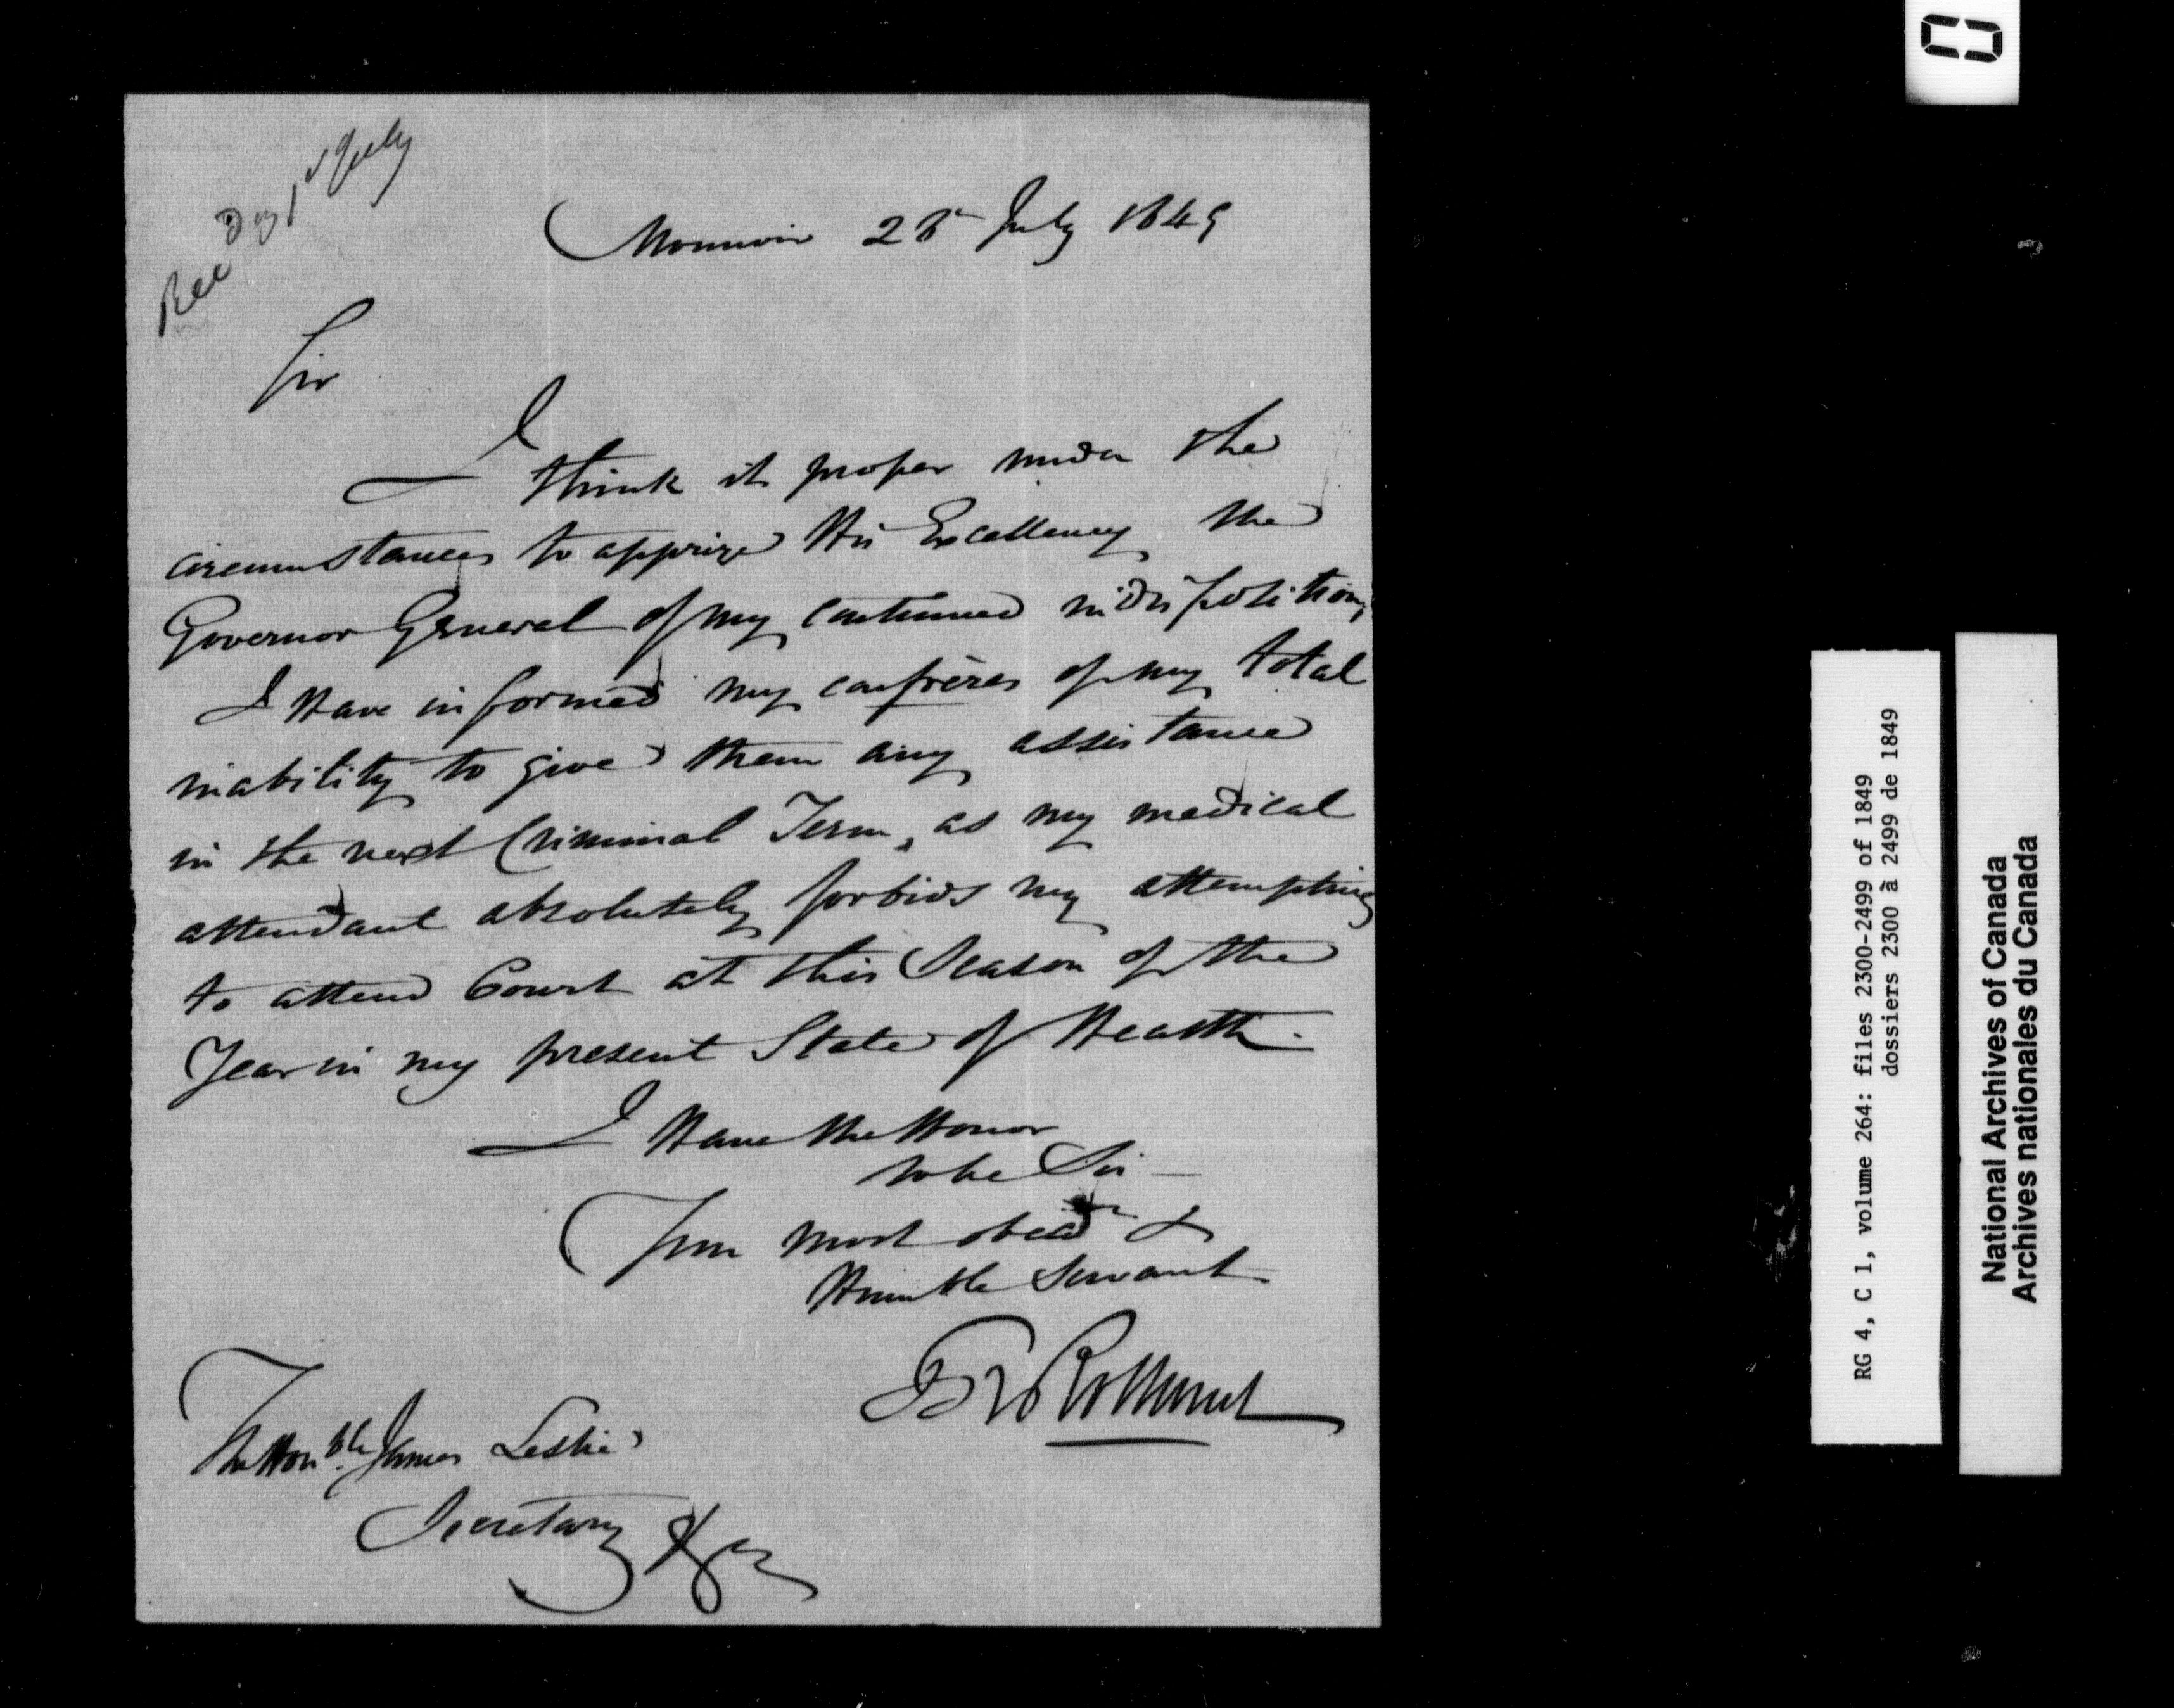 Rec^d 31^st July
Monnoir 28^th July 1849
Sir
I think it proper under the
circumstances to apprize His Excellency the
Governor General of my continued indisposition,
I Have informed my confrères of my total
inability to give them any assistance
in the next Criminal Term, as my medical
attendant absolutely forbids my attempting
to attend Court at this Season of the
Year in my present State of Health.
I Have the Honor
to be Sir
Your most obed^t &
Humble Servant
Rolland
The Hon^ble James Leslie
Secretary &c
RG 4, C 1, volume 264: files 2300-2499 of 1849
dossiers 2300 à 2499 de 1849
National Archives of Canada
Archives nationales du Canada